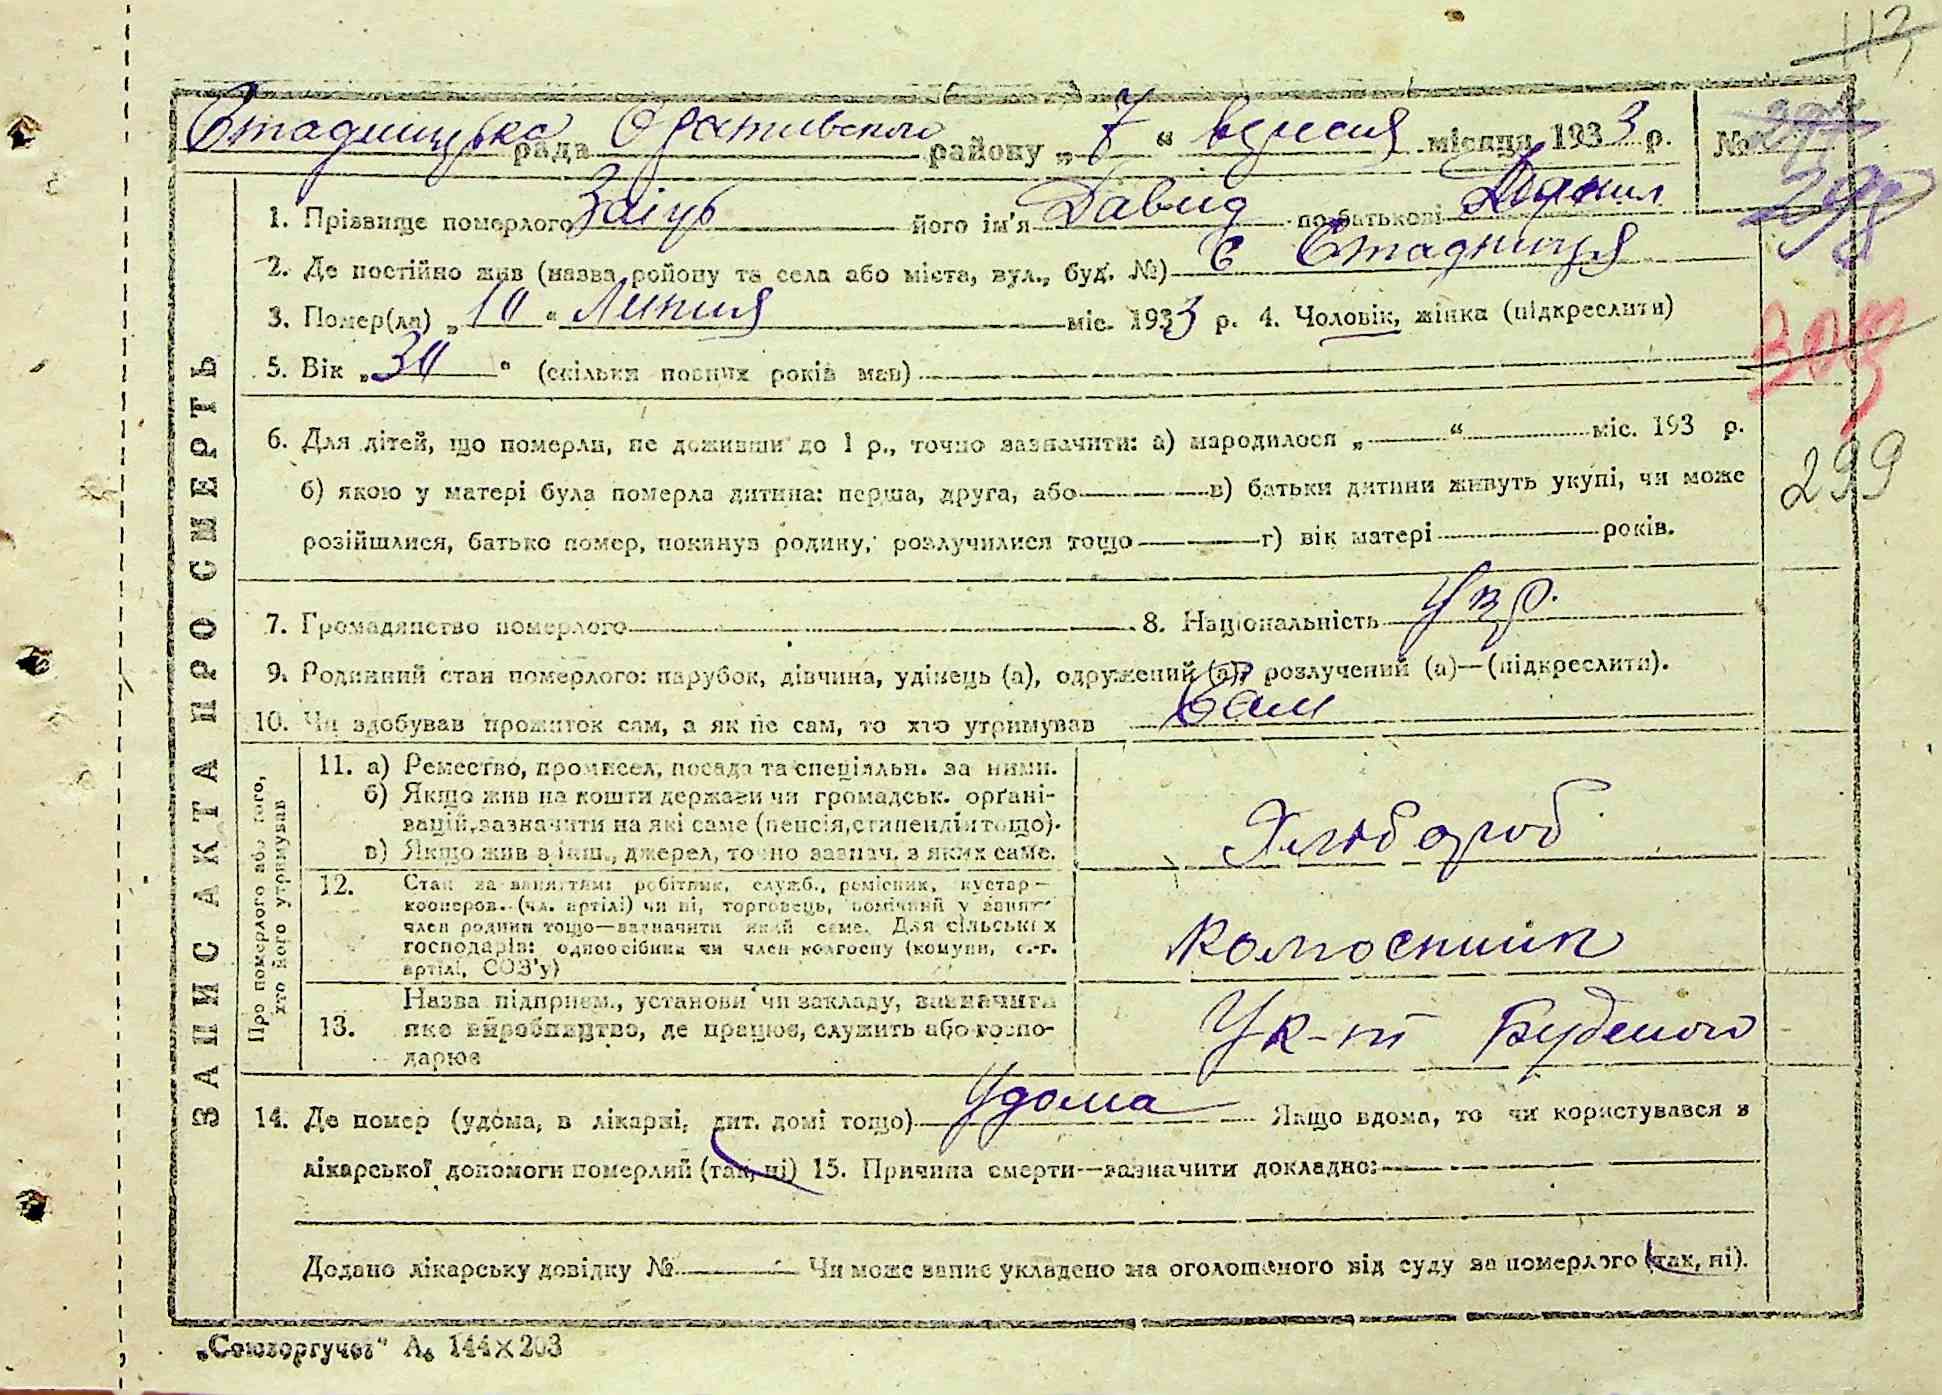 113
Стадницька рада Оративського району „7“ вересня місяця 1933 р. № 297
298
1. Прізвище померлого Заіць його ім'я Давид по батькові Данил
2. Де постійно жив (назва району та села або міста, вул., буд. №) С Стадниця
3. Помер(ла) „10“ Липня міс. 1933 р. 4. Чоловік, жінка (підкреслити)
303
5. Вік „30“ (скільки повних років мав)
6. Для дітей, що померли, не доживши до 1 р., точно зазначити: а) народилося „ “ міс. 193 р.
299
б) якою у матері була померла дитина: перша, друга, або в) батьки дитини живуть укупі, чи може
розійшлися, батько помер, покинув родину, розлучилися тощо г) вік матері років.
7. Громадянство померлого 8. Національність Укр.
9. Родинний стан померлого: парубок, дівчина, удівець (а), одружений (а), розлучений (а)—(підкреслити).
10. Чи здобував прожиток сам, а як не сам, то хто утримував Сам
ЗАПИС АКТА ПРО СМЕРТЬ
Про померлого або того,
хто його утримував
11. а) Ремество, промисел, посада та спеціяльн. за ними.
б) Якщо жив на кошти держави чи громадськ. орґані-
зацій, зазначити на які саме (пенсія, стипендія тощо).
в) Якщо жив з інш., джерел, точно зазнач. з яких саме.
Хлібороб
12. Стан за заняттям: робітник, служб., ремісник, кустар—
кооперов. (чл. артілі) чи ні, торговець, помічний у занятт.
член родини тощо—зазначити який саме. Для сільських
господарів: одноосібник чи член колгоспу (комуни, с.-г.
артілі, СОЗ'у)
Колгоспник
13. Назва підприєм., установи чи закладу, зазначити
яке виробництво, де працює, служить або госпо-
дарює
У к-п Буденого
14. Де помер (удома, в лікарні, дит. домі тощо) Удома Якщо вдома, то чи користувався з
лікарської допомоги померлий (так, ні) 15. Причина смерти—зазначити докладно:
Додано лікарську довідку № Чи може запис укладено на оголошеного від суду за померлого (так, ні).
„Союзоргучет“ А₆ 144×203